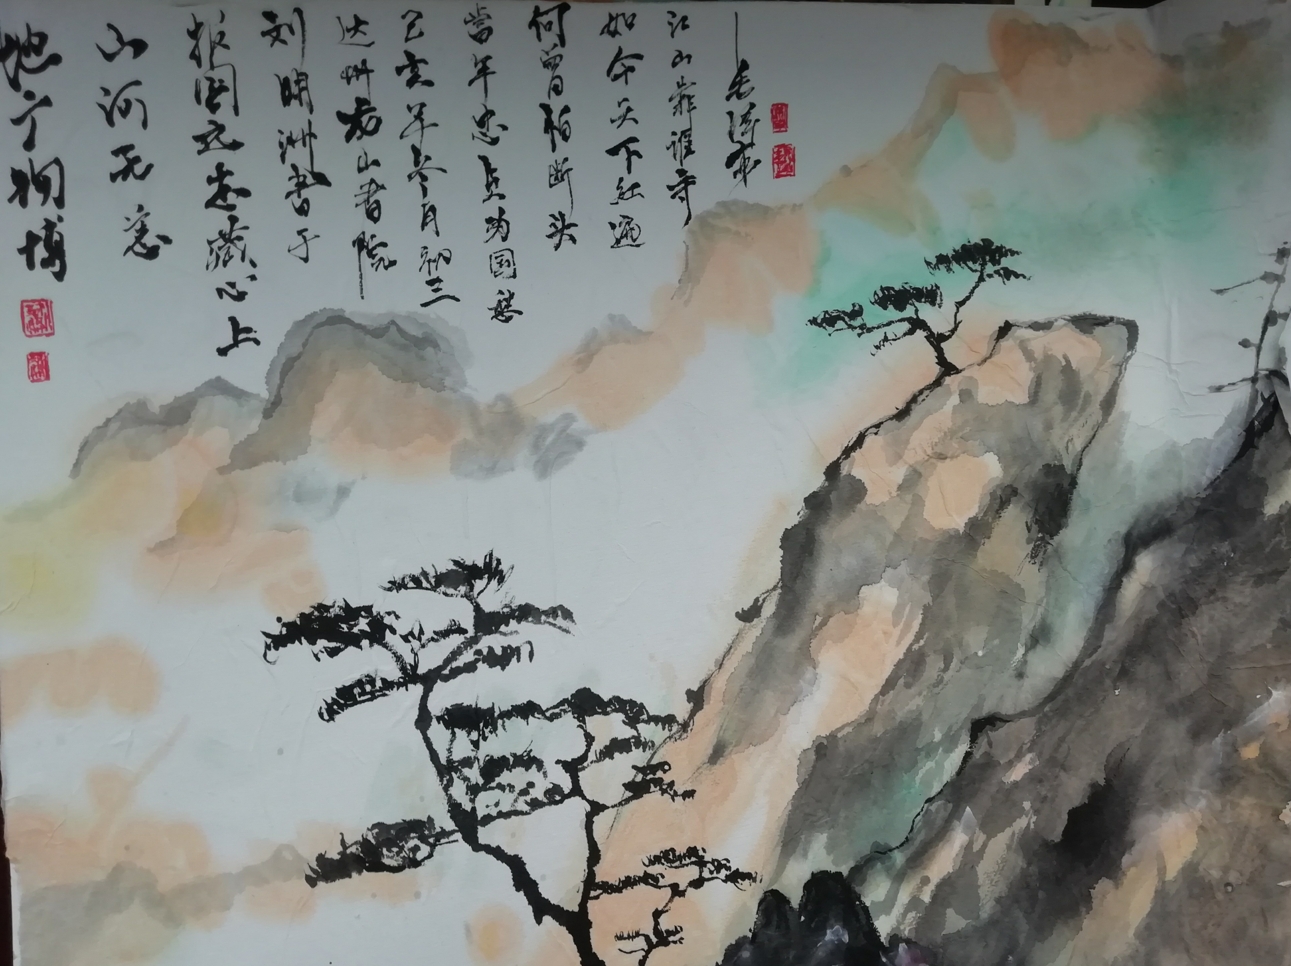 地广物博
山河无恙
报国之志藏心上
刘明洲书于
达州龙山书院
己亥年冬月初三
當年忠贞为国愁
何曾怕断头
如今天下红遍
江山靠谁守
—毛泽东